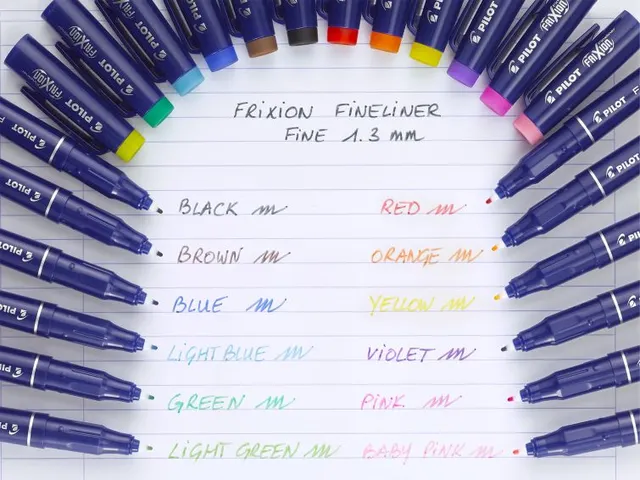 FRIXION FINELINER
FINE 1.3 mm
BLACK
BROWN
BLUE
LIGHT BLUE
GREEN
LIGHT GREEN
RED
ORANGE
YELLOW
VIOLET
PINK
BABY PINK
PILOT FRIXION
PILOT FRIXION
PILOT
PILOT
PILOT
PILOT FRIXION
PILOT FRIXION
PILOT
PILOT
PILOT
PILOT
PILOT